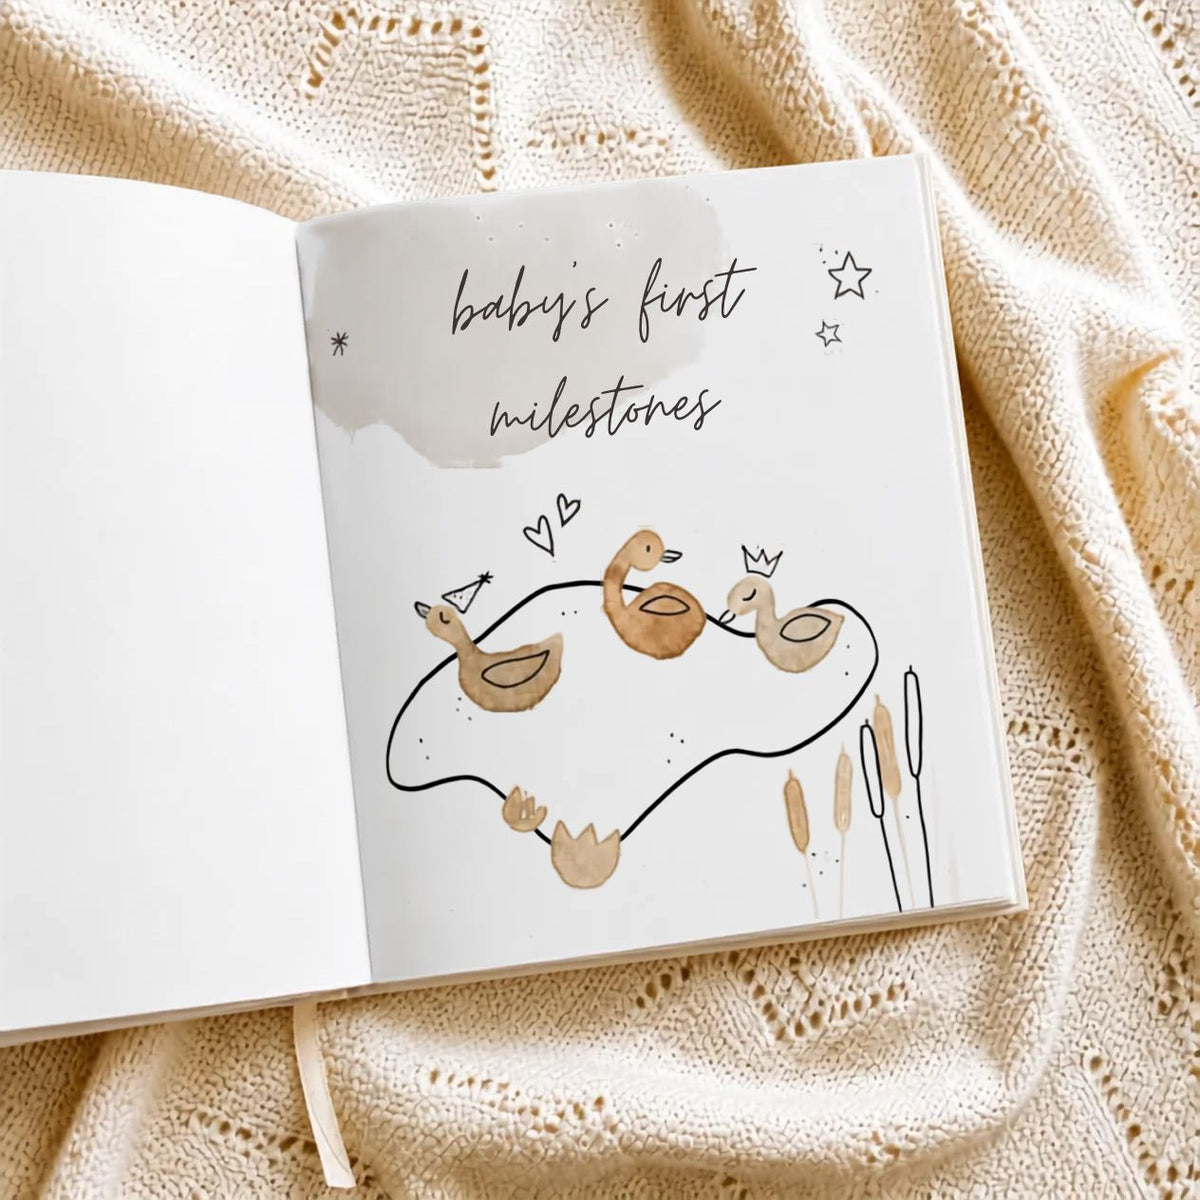 baby's first
milestones